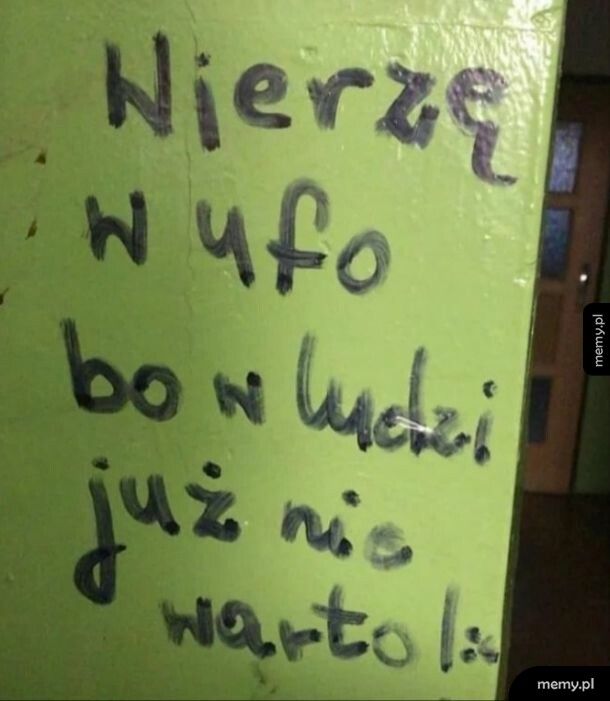 Wierzę
w ufo
bo w ludzi
już nie
warto |:
memy.pl
memy.pl